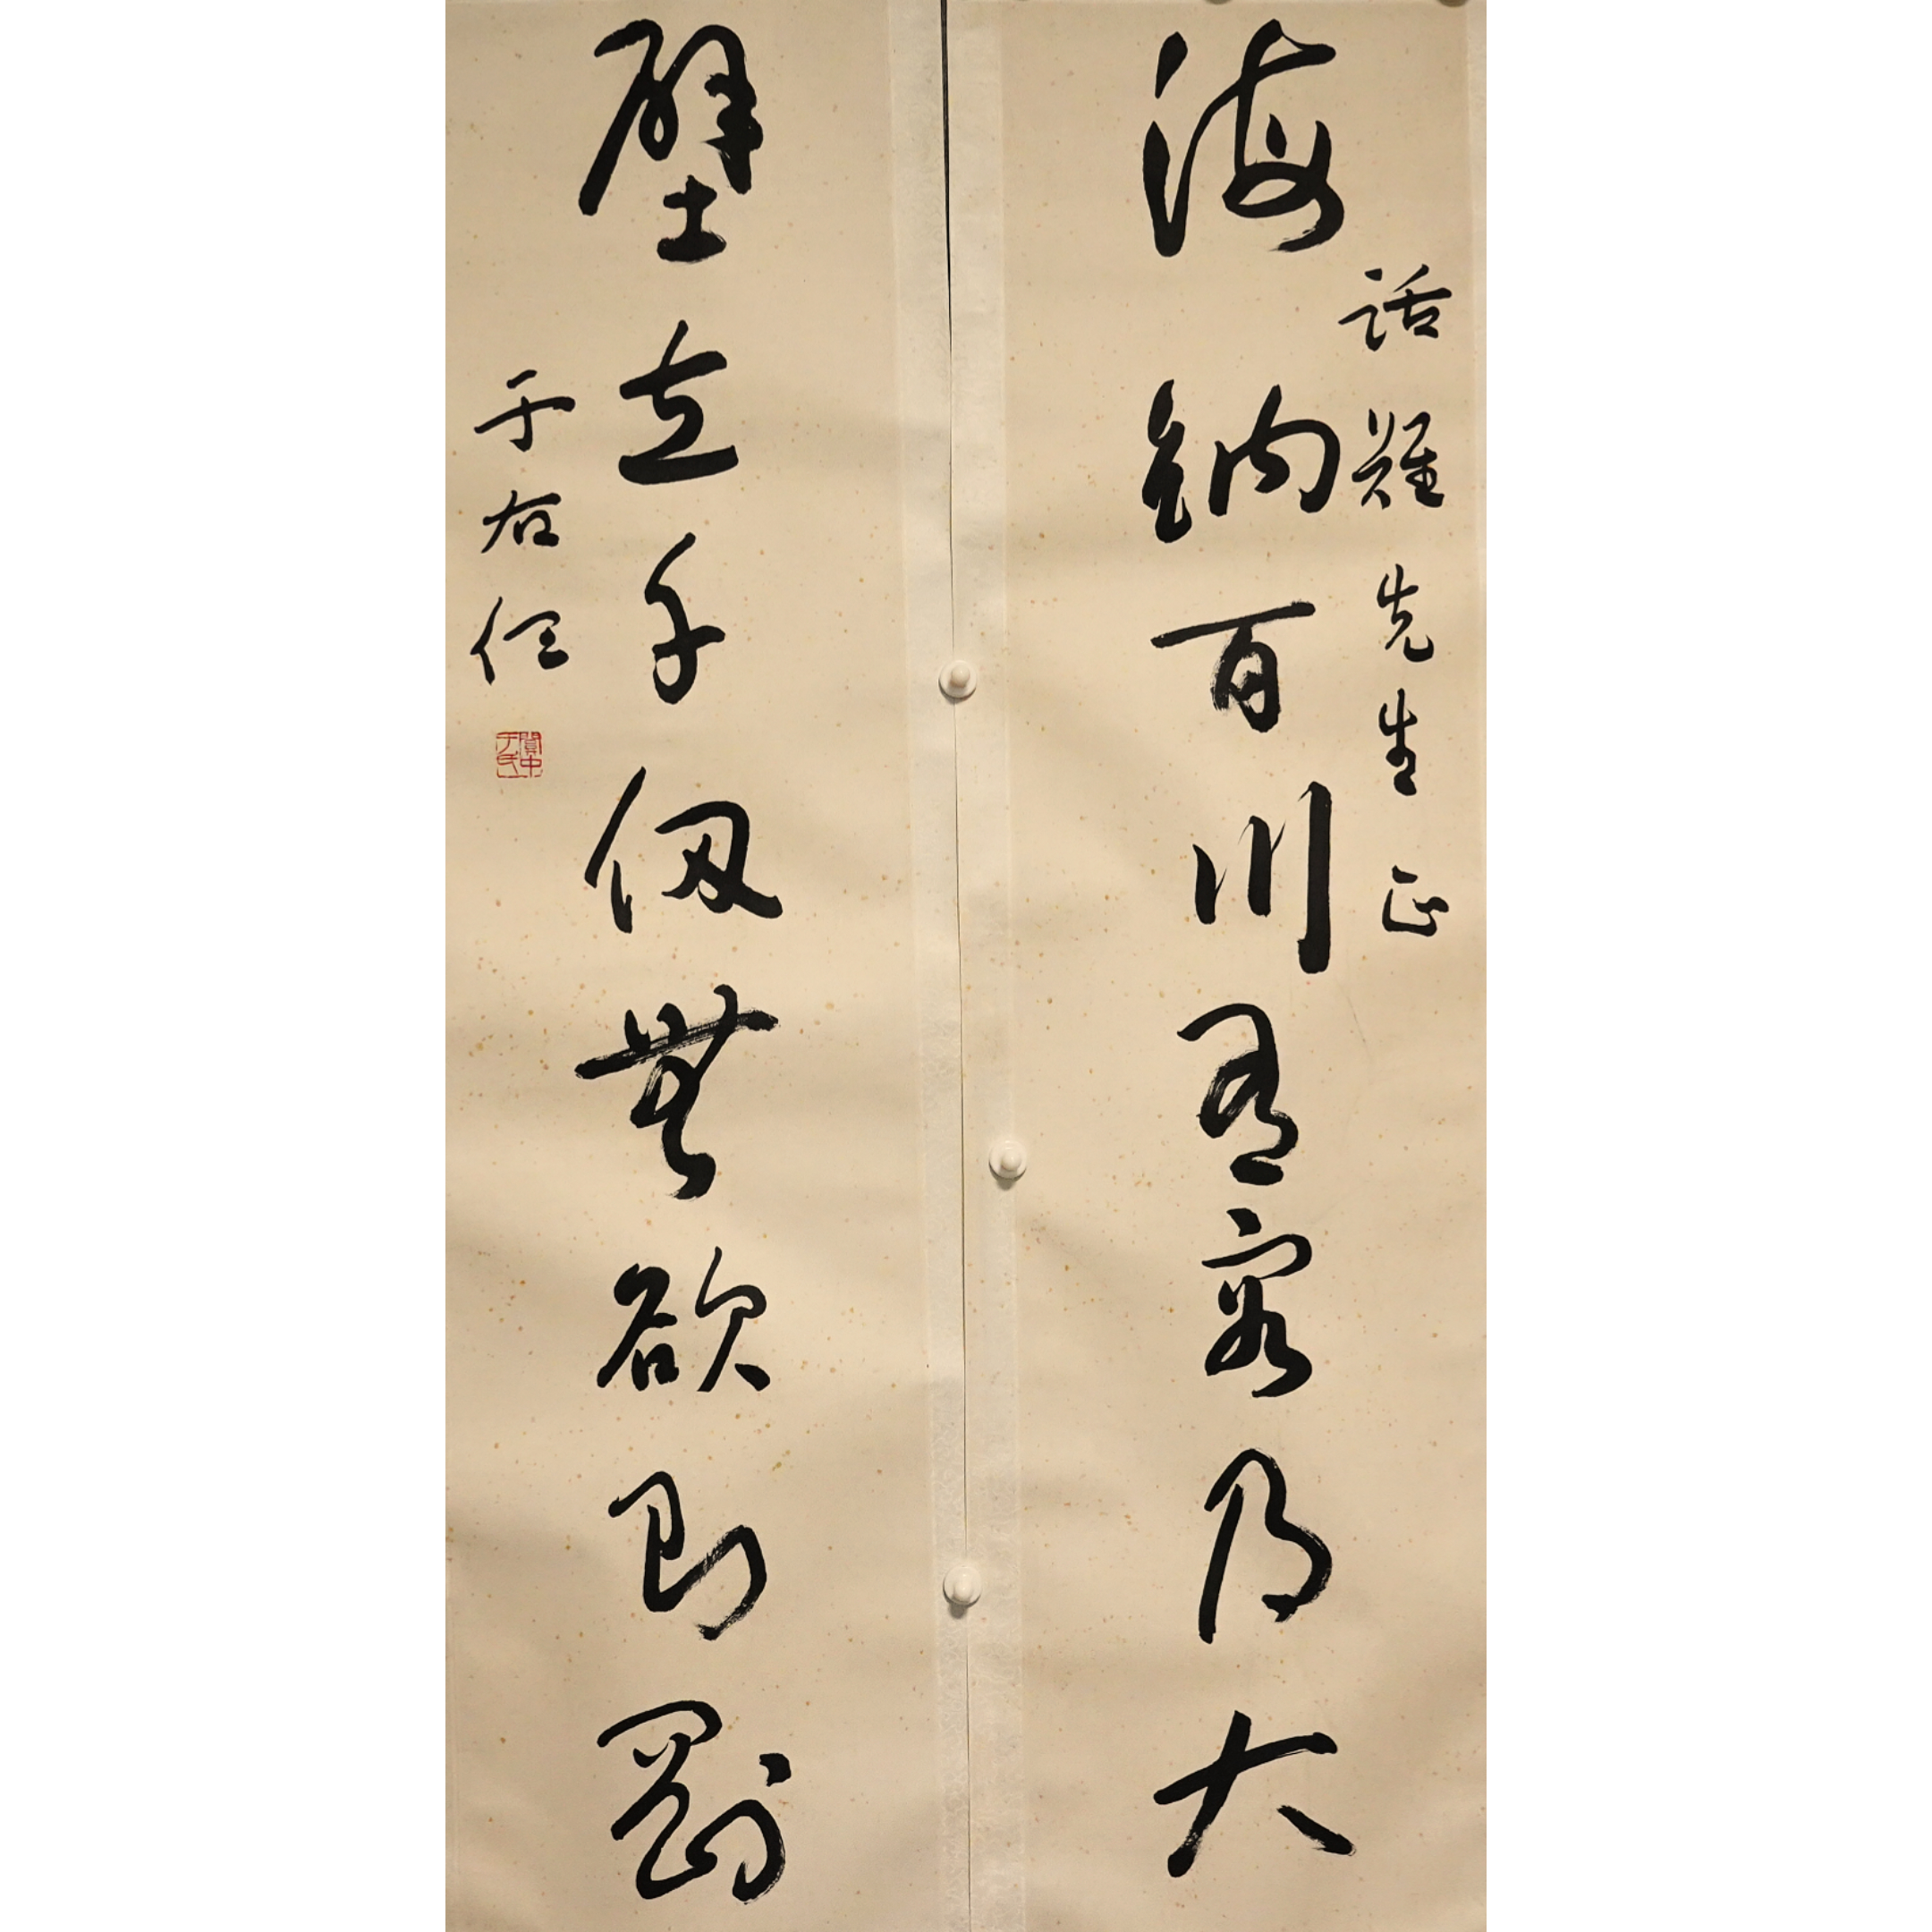 話難先生正
海納百川有容乃大
壁立千仞無欲則剛
于右任
關中于氏